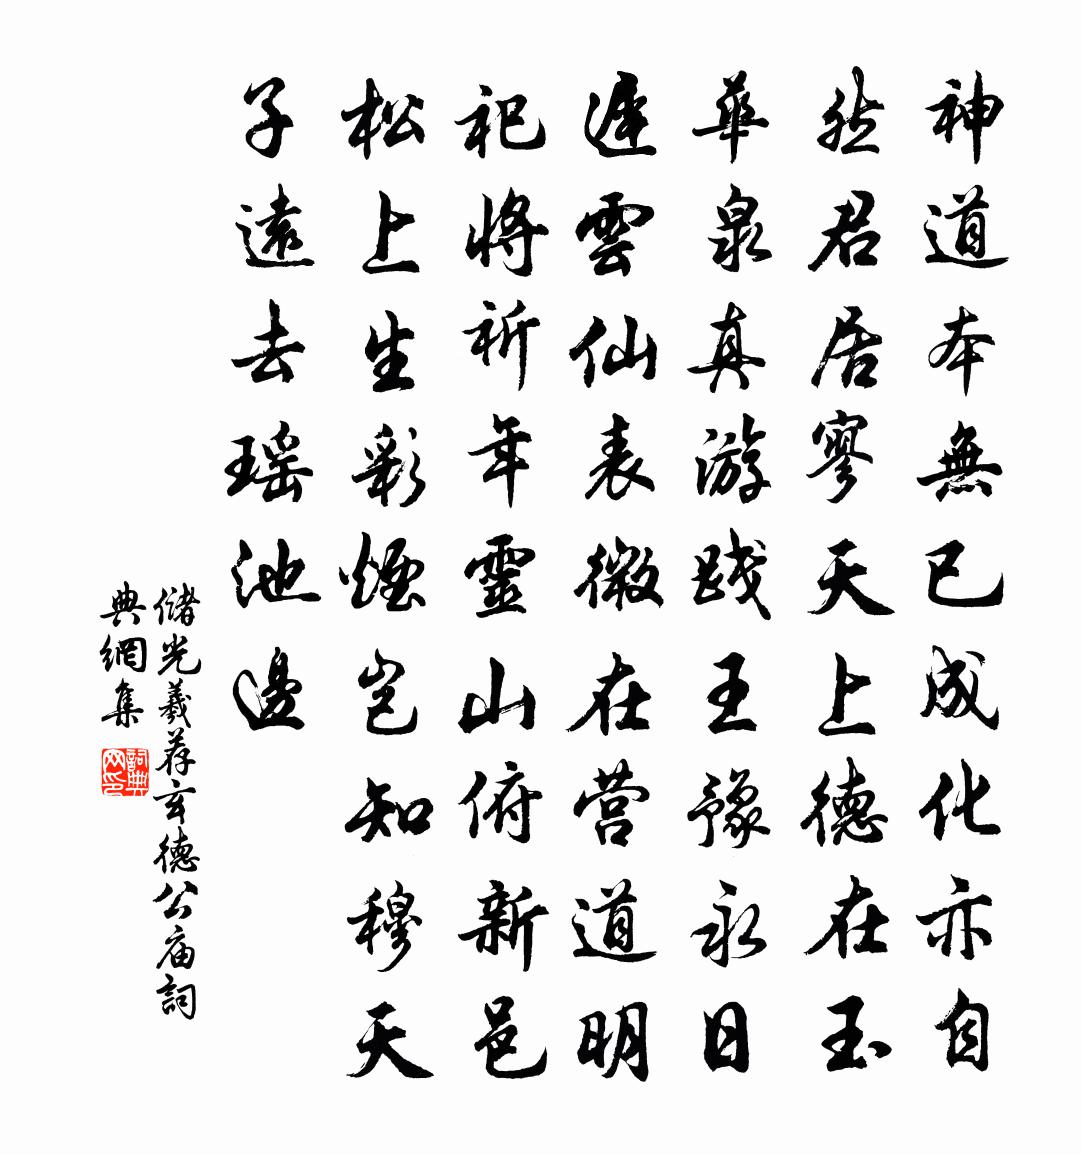 神道本無已成化亦自
然君居寥天上德在玉
華泉真游踐王豫永日
遲雲仙表微在营道明
祀將祈年靈山俯新邑
松上生彩煙豈知穆天
子遠去瑶池邊
儲光羲荐玄德公庙詞
典網集
詞典
网印